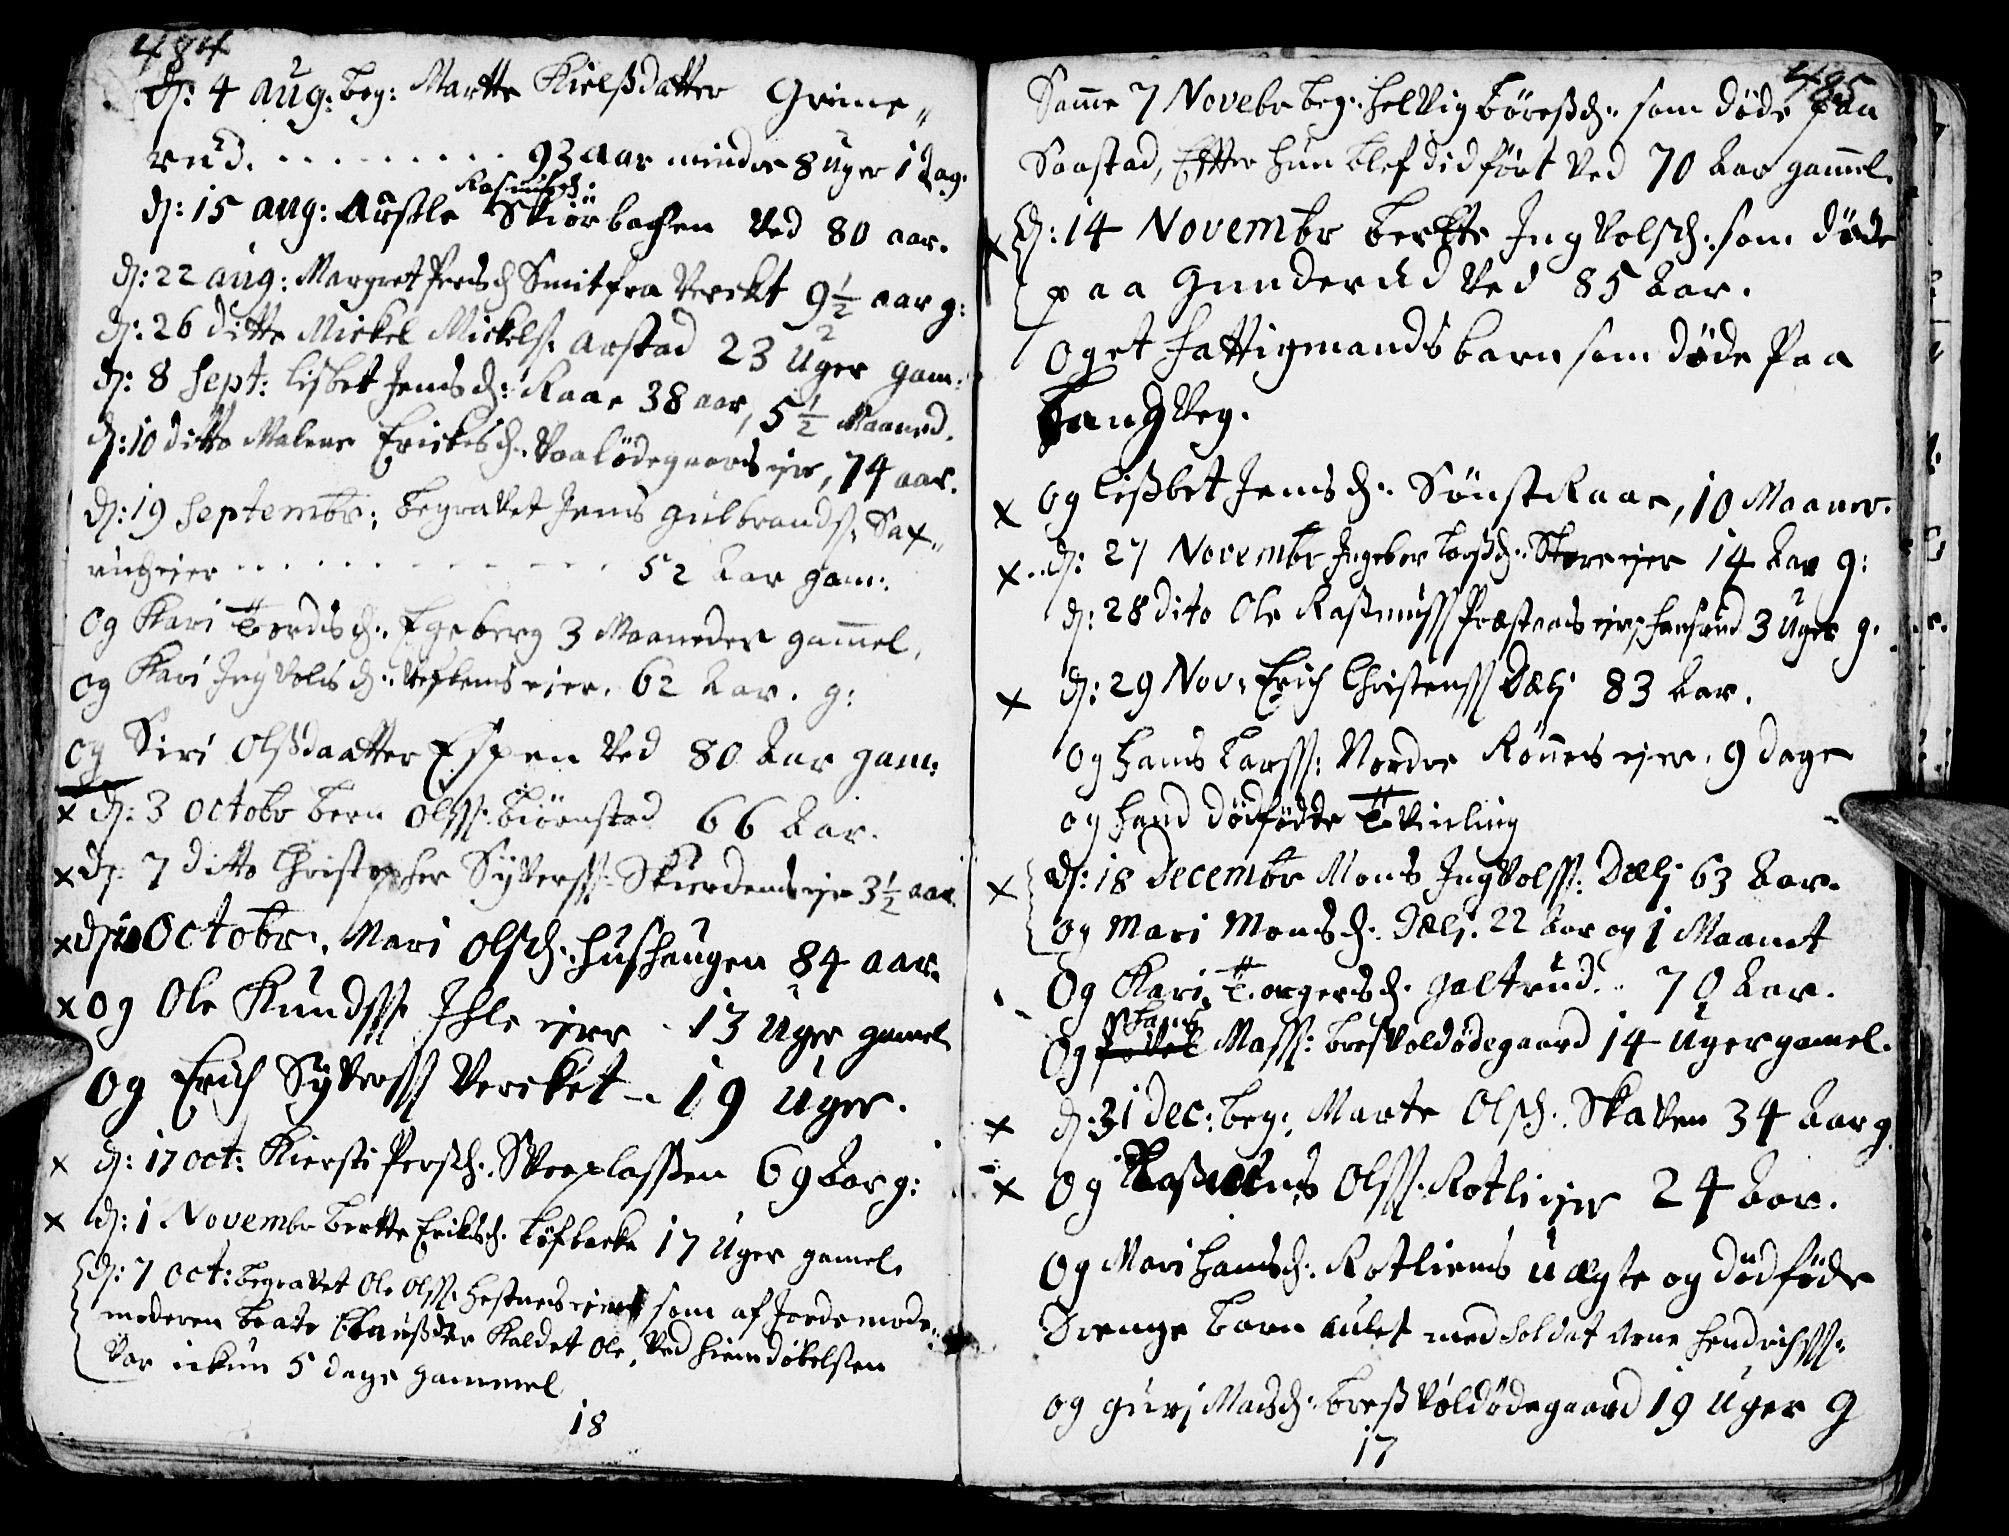 484
d: 4 aug: beg: Martte Kielsdatter Grime„
rud. . . . . . . . . . 93 aar mindre 8 uger 1 dag.
Rasmusd:
d: 15 aug: Aasle Skiörbachen ved 80 aar.
d: 22 aug: Margret Persd Smit fra Verckt 9½ aar g:
d: 26 ditto Mickel Mickels: Arstad 23 Uger gam:
d: 8 Sept: Lisbet Jensd: Raae 38 aar, 5½ Maaned.
d: 10 ditto Malene Ericksd: Vaalödegaards eje, 74 aar.
d: 19 Septembr: begravet Jens Gulbrands: Sax„
rudeier . . . . . . . . . . . 52 Aar gam:
Og Kari Tordsd: Egeberg 3 Maaneder gammel,
og Kari Ingvolsd: eier. 62 Aar. g:
og Siri Olsdaatter Espen ved 80 Aar gam:
x d: 3 Octobr Bern Olss: Biörnstad 66 Aar.
x d: 7 ditto Christopher Syverss: Skierdens eje 3½ aar
x d: 10 Octobr. Mari Olsd: Hushaugen 84 aar.
x Og Ole Knudss: Ihle ejer . 13 Uger gamel
Og Erich Syverss Vercket - 19 Uger.
x d: 17 Oct: Kiersti Persd: Sveplassen 69 Aar g:
x d: 1 Novembr Bertte Eriksd: Löfbacke 17 Uger gamel.
d: 7 Oct: begravet Ole Olss: Hestnes som af Jordemode„
moderen Beate Clausdtr Kaldet Ole, ved Hiemdöbelsen
var ickun 5 dage gammel
18
485
Samme 7 Novebr beg: Helvig Böresd: som döde paa
Saastad, Efter hun blef did fört ved 70 Aar gammel.
x d: 14 Novembr Berthe Ingvolsd: som döde
paa Gunderud ved 85 Aar.
Og et fattigmands barn som döde paa
Tangveg.
x og Lisbet Jensd: Sönst Raae, 10 Maaner.
x d: 27 Novembr Ingebor Larsd: Store ejer 14 Aar g:
d: 28 dito Ole Rasmuss Præstens ejer, 3 Uger g.
x d: 29 Nov: Erich Christenss Dælj 83 Aar.
og Hans Larss: Nordre Rönnes ejer. 9 dage
og hand dödfödte Tvinling
x d: 18 Decembr Mons Ingvolss: Dælj 63 Aar.
og Mari Monsd: Dælj. 22 Aar og 1 Maanet
Og Kari Torgersd: Galtrud. . 70 Aar.
Lars
Og Mass: Bresvoldödegaard 14 Uger gamel.
x d: 31 Dec: beg: Marte Olsd: Skaven 34 Aar g
x Og Rasmus Olss: Rotli ejer 24 Aar.
Og Mari Hansd: Rotliens uægte og dödföde
Drenge Barn aulet med Soldat Arne Hendrichss:
og Gurj Madsd: Bresvoldödegaard 19 Uger g
17